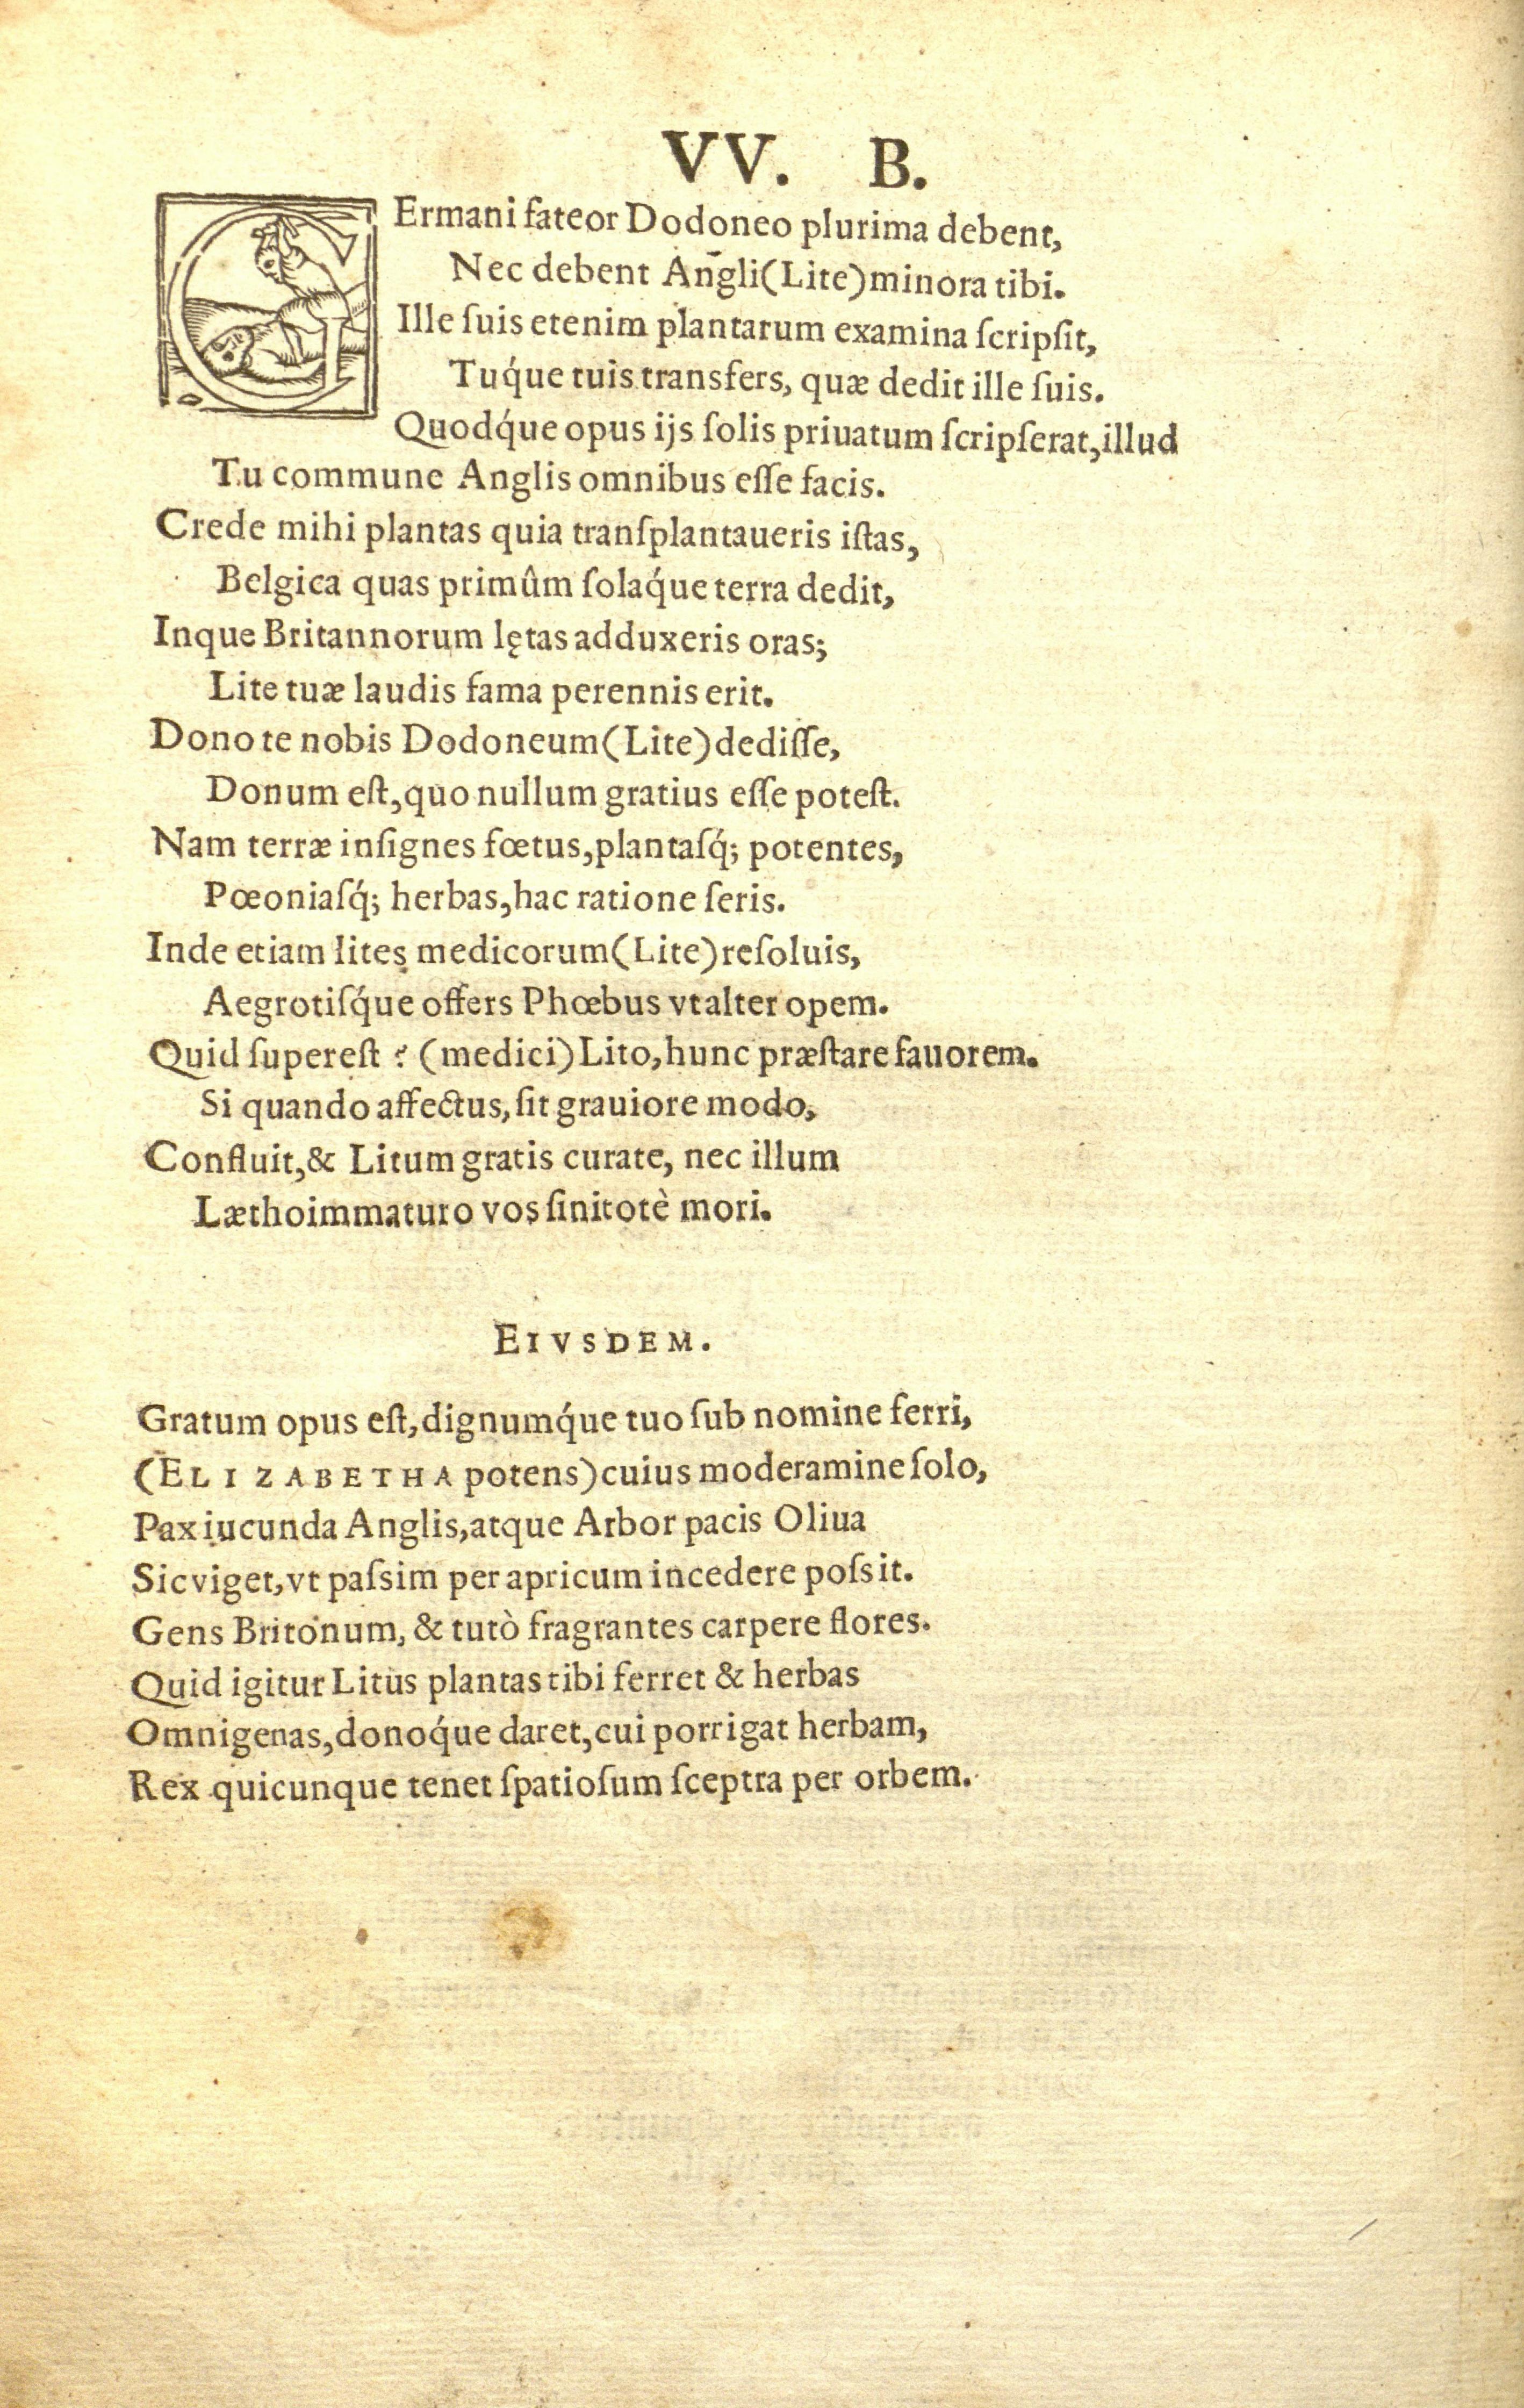 VV. B.
GErmani fateor Dodoneo plurima debent,
Nec debent An̄gli (Lite) minora tibi.
Ille ſuis etenim plantarum examina ſcripſit,
Tuq́ue tuis transfers, quæ dedit ille ſuis.
Quodq́ue opus ijs ſolis priuatum ſcripſerat, illud
Tu commune Anglis omnibus eſſe facis.
Crede mihi plantas quia tranſplantaueris iſtas,
Belgica quas primûm ſolaq́ue terra dedit,
Inque Britannorum lętas adduxeris oras;
Lite tuæ laudis fama perennis erit.
Dono te nobis Dodoneum (Lite) dediſſe,
Donum eſt, quo nullum gratius eſſe poteſt.
Nam terræ inſignes fœtus, plantaſq́; potentes,
Pœoniaſq́; herbas, hac ratione ſeris.
Inde etiam lites medicorum (Lite) reſoluis,
Aegrotiſq́ue offers Phœbus vt alter opem.
Quid ſupereſt? (medici) Lito, hunc præſtare fauorem.
Si quando affectus, ſit grauiore modo,
Confluit, & Litum gratis curate, nec illum
Læthoimmaturo vos ſinitotè mori.
EIVSDEM.
Gratum opus eſt, dignumq́ue tuo ſub nomine ferri,
(ELIZABETHA potens) cuius moderamine ſolo,
Pax iucunda Anglis, atque Arbor pacis Oliua
Sic viget, vt paſsim per apricum incedere poſsit.
Gens Britonum, & tutò fragrantes carpere flores.
Quid igitur Litus plantas tibi ferret & herbas
Omnigenas, donoq́ue daret, cui porrigat herbam,
Rex quicunque tenet ſpatioſum ſceptra per orbem.